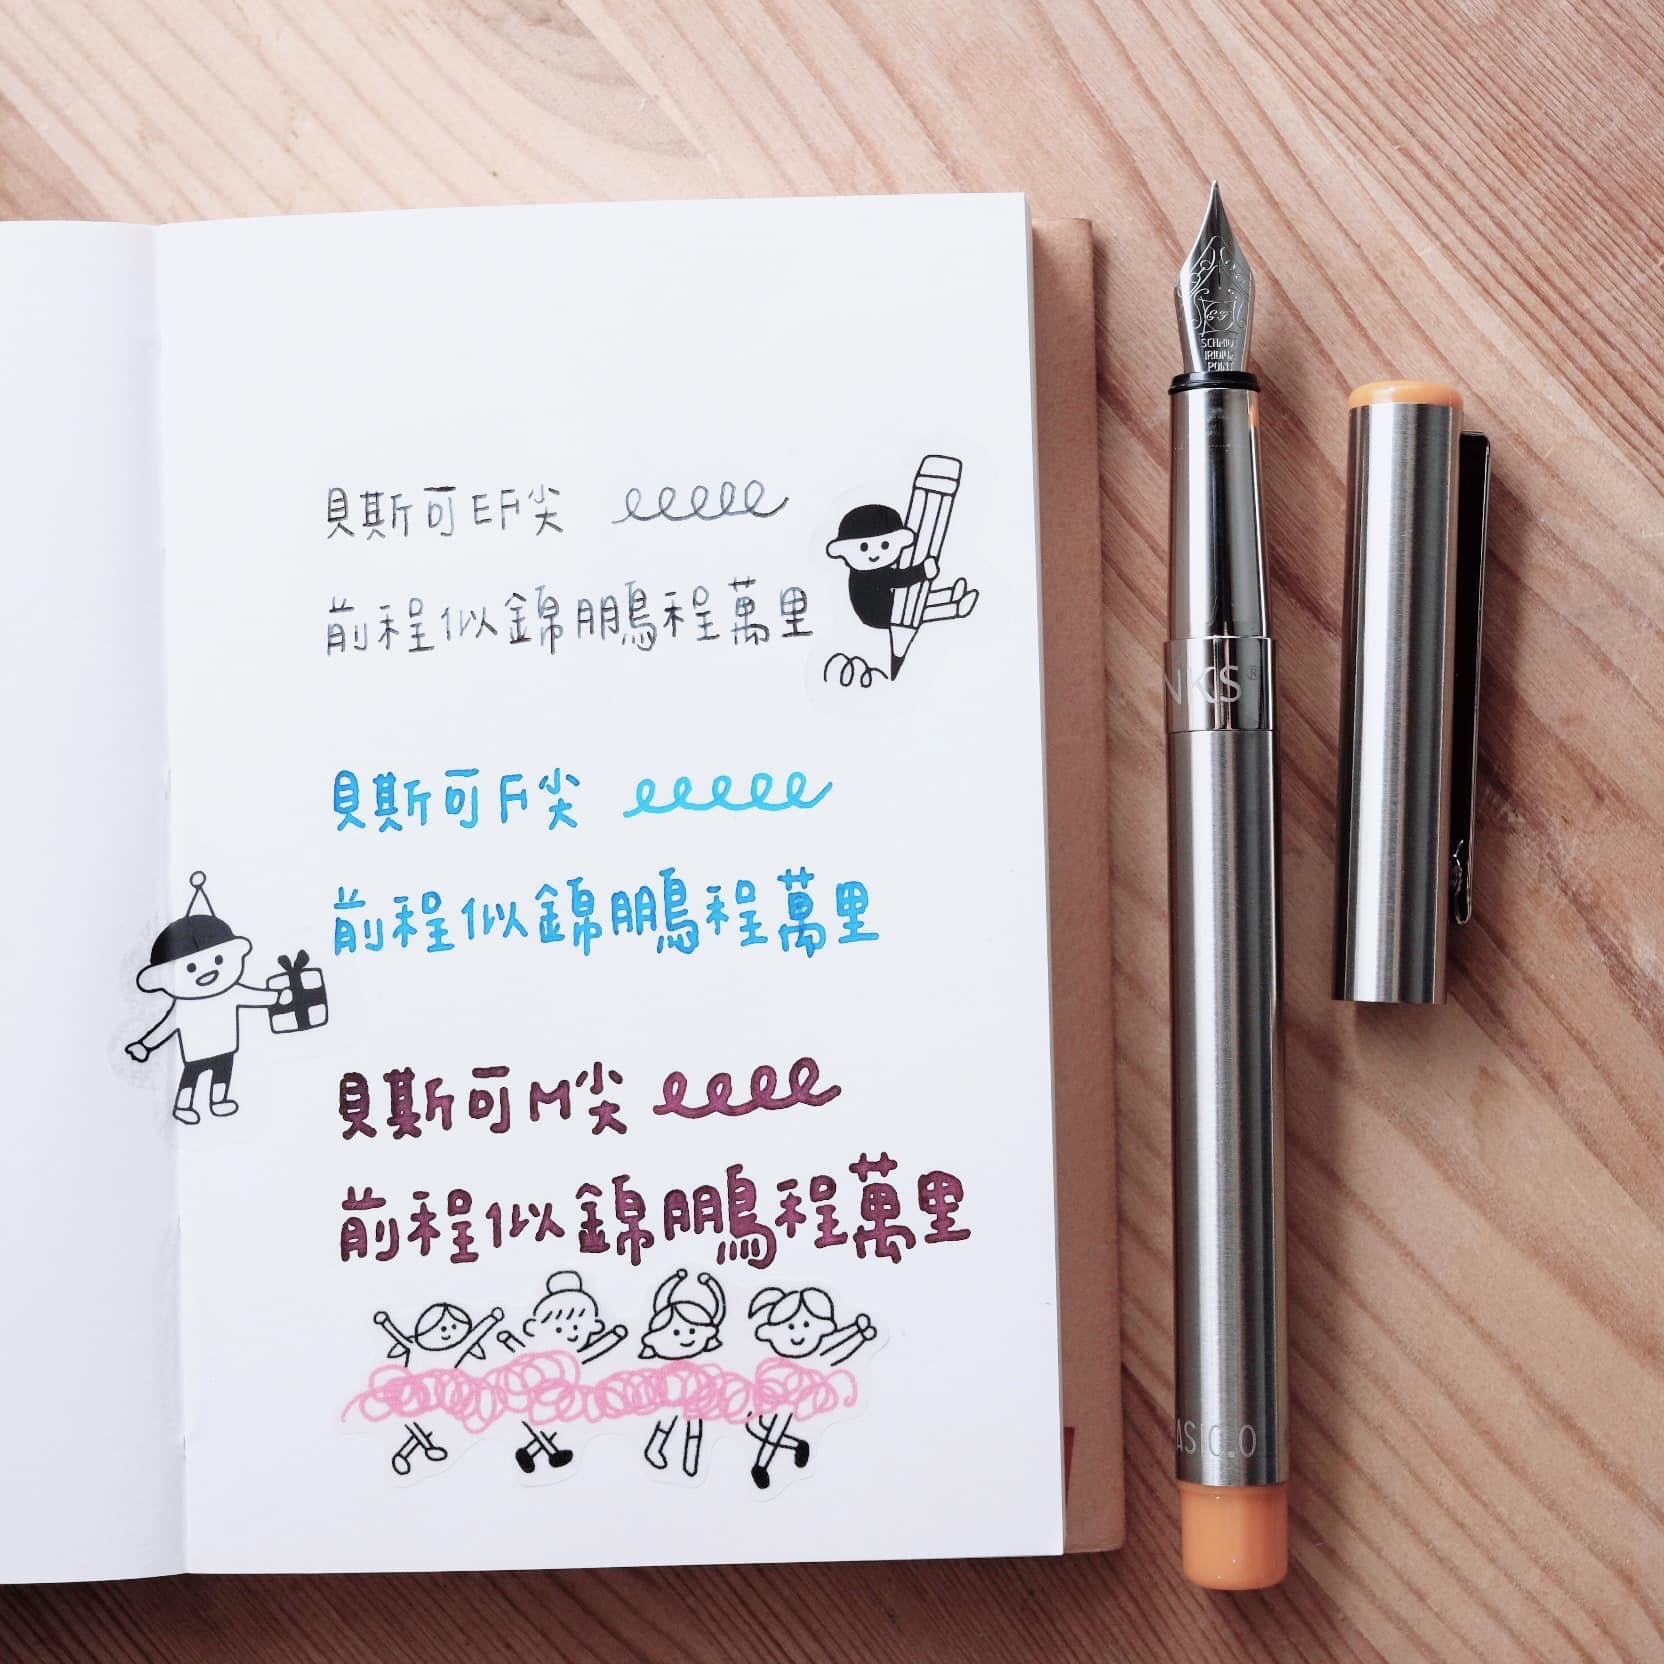 貝斯可EF尖
前程似錦鵬程萬里
貝斯可F尖
前程似錦鵬程萬里
貝斯可M尖
前程似錦鵬程萬里
SCHMI
IRIDIUM
POINT
NKS®
ASIC.O